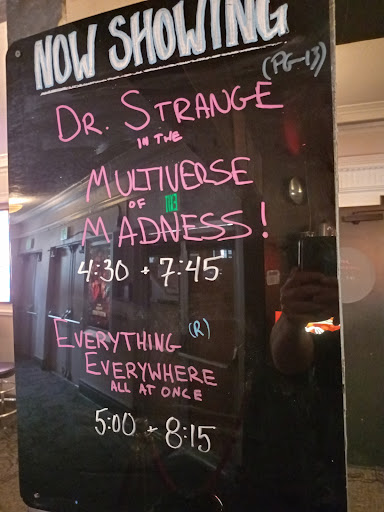 NOW SHOWING
(PG-13)
DR. STRANGE
IN THE
MULTIVERSE
OF
MADNESS!
4:30 + 7:45
EVERYTHING (R)
EVERYWHERE
ALL AT ONCE
5:00 + 8:15